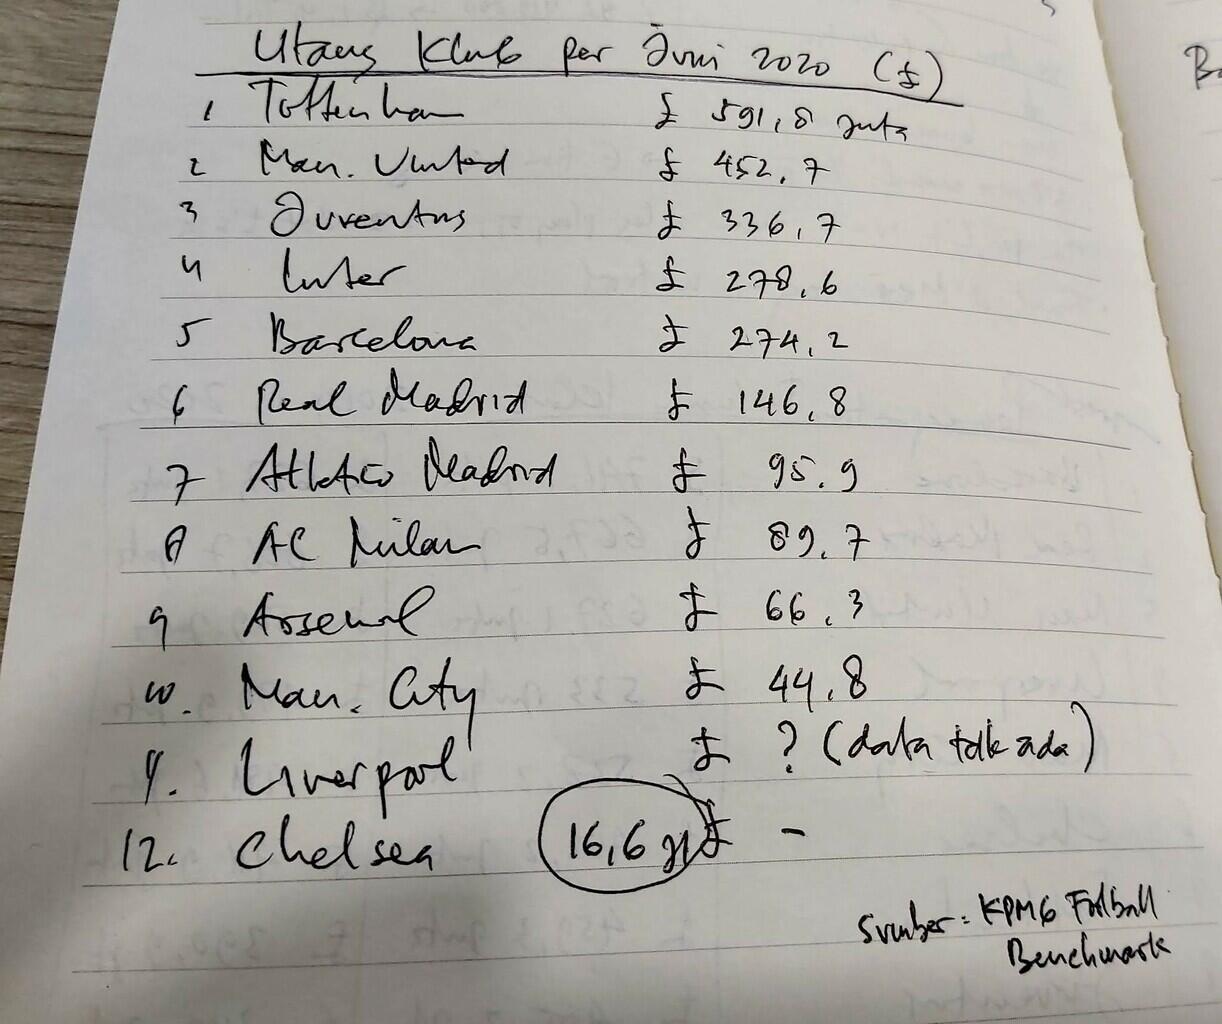 Utang Klub per Juni 2020 (£)
1 Tottenham £ 591,8 juta
2 Man. United £ 452,7
3 Juventus £ 336,7
4 Inter £ 278,6
5 Barcelona £ 274,2
6 Real Madrid £ 146,8
7 Atletico Madrid £ 95,9
8 AC Milan £ 89,7
9 Arsenal £ 66,3
10. Man. City £ 44,8
11. Liverpool £ ? (data tdk ada)
12. Chelsea 16,6 £ -
Sumber: KPMG Football
Benchmark